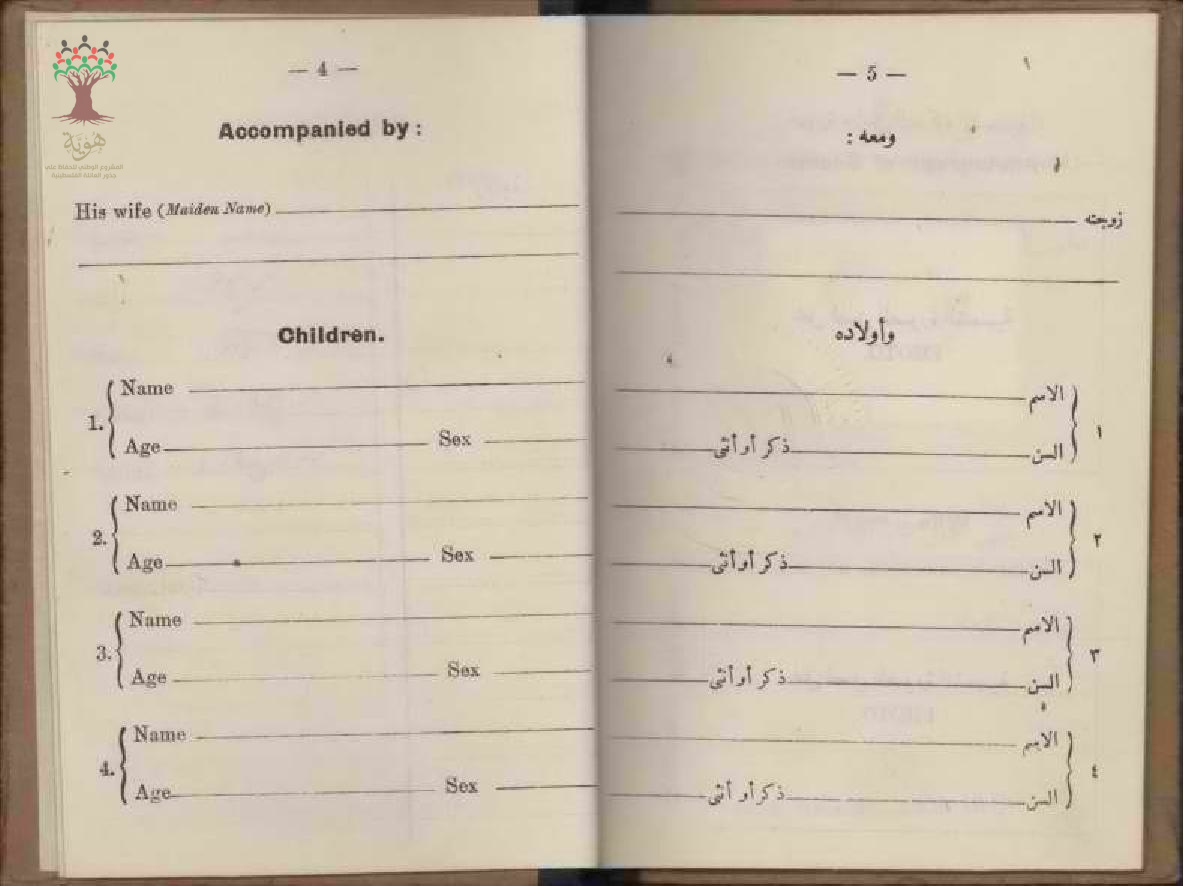 هُوِيَّة
المشروع الوطني للحفاظ على
جذور العائلة الفلسطينية
— 4 —
Accompanied by :
His wife (Maiden Name)
Children.
1. Name
Age Sex
2. Name
Age Sex
3. Name
Age Sex
4. Name
Age Sex
— 5 —
ومعه :
زوجته
وأولاده
١ الاسم
السن ذكر أو أنثى
٢ الاسم
السن ذكر أو أنثى
٣ الاسم
السن ذكر أو أنثى
٤ الاسم
السن ذكر أو أنثى